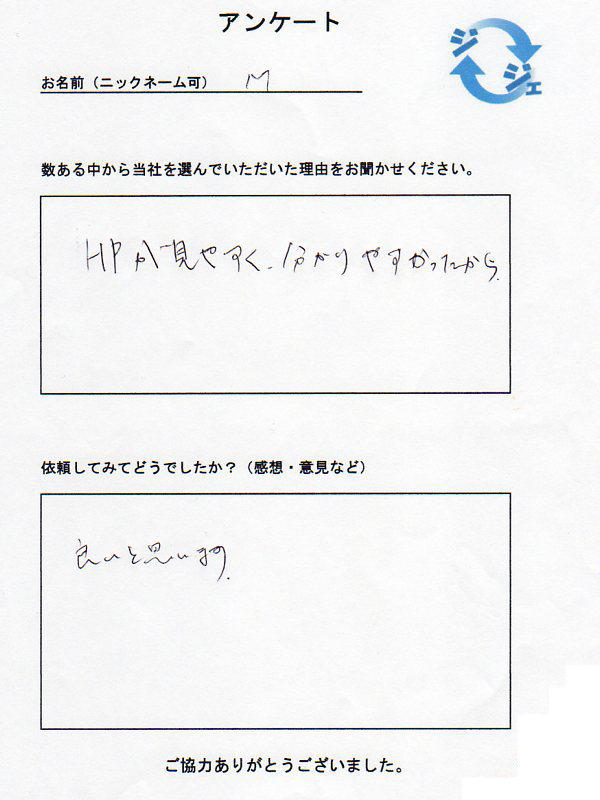 アンケート
ジジェ
お名前（ニックネーム可） M
数ある中から当社を選んでいただいた理由をお聞かせください。
HPが見やすく、分かりやすかったから.
依頼してみてどうでしたか？（感想・意見など）
良いと思います.
ご協力ありがとうございました。